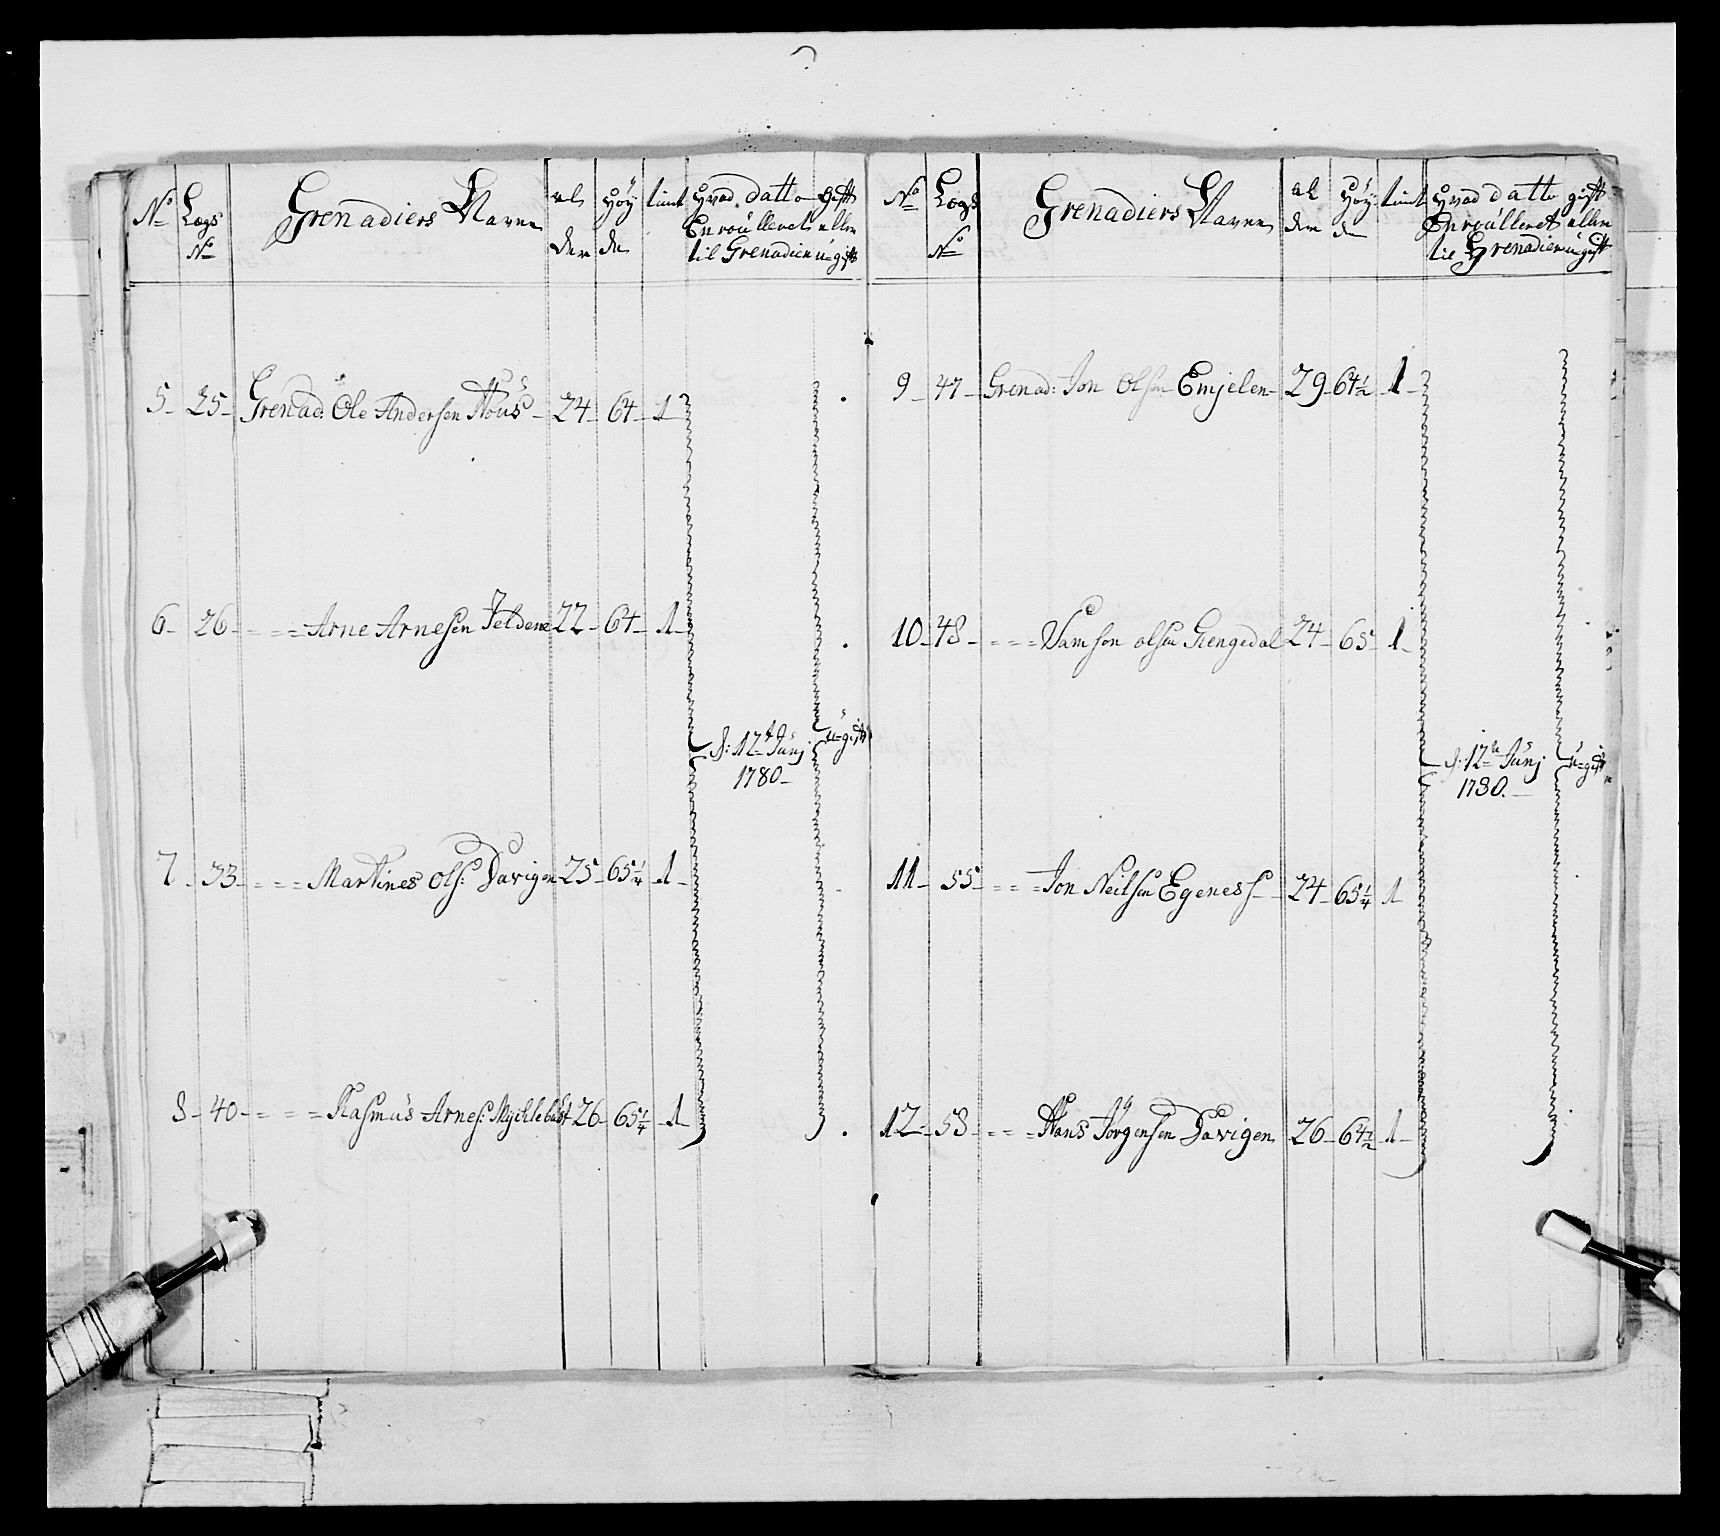 No Lægs No Grenadiers Navne alder Høyde tint Hvad datto Enroulleret til Grenadier gift eller ugift
5 25 Grenad: Ole Andersen Hous 24 64 1
6 26 Arne Arnesen Feldene 22 64 1
d: 12te Junj 1780 ugift
7 33 Martines Ols: Davigen 25 65 1/4 1
8 40 Rasmus Arnes: Myklebust 26 65 1/4 1
No Lægs No Grenadiers Navne alder Høyde tint Hvad datto Enroulleret til Grenadier gift eller ugift
9 47 Grenad: Jon Olsen Emjelen 29 64 1/2 1
10 48 Samson olsen Giengedal 24 65 1
d: 12te Junj 1780. ugift
11 55 Jon Neilsen Egeness 24 65 1/4 1
12 58 Hans Jörgensen Davigen 26 64 1/2 1